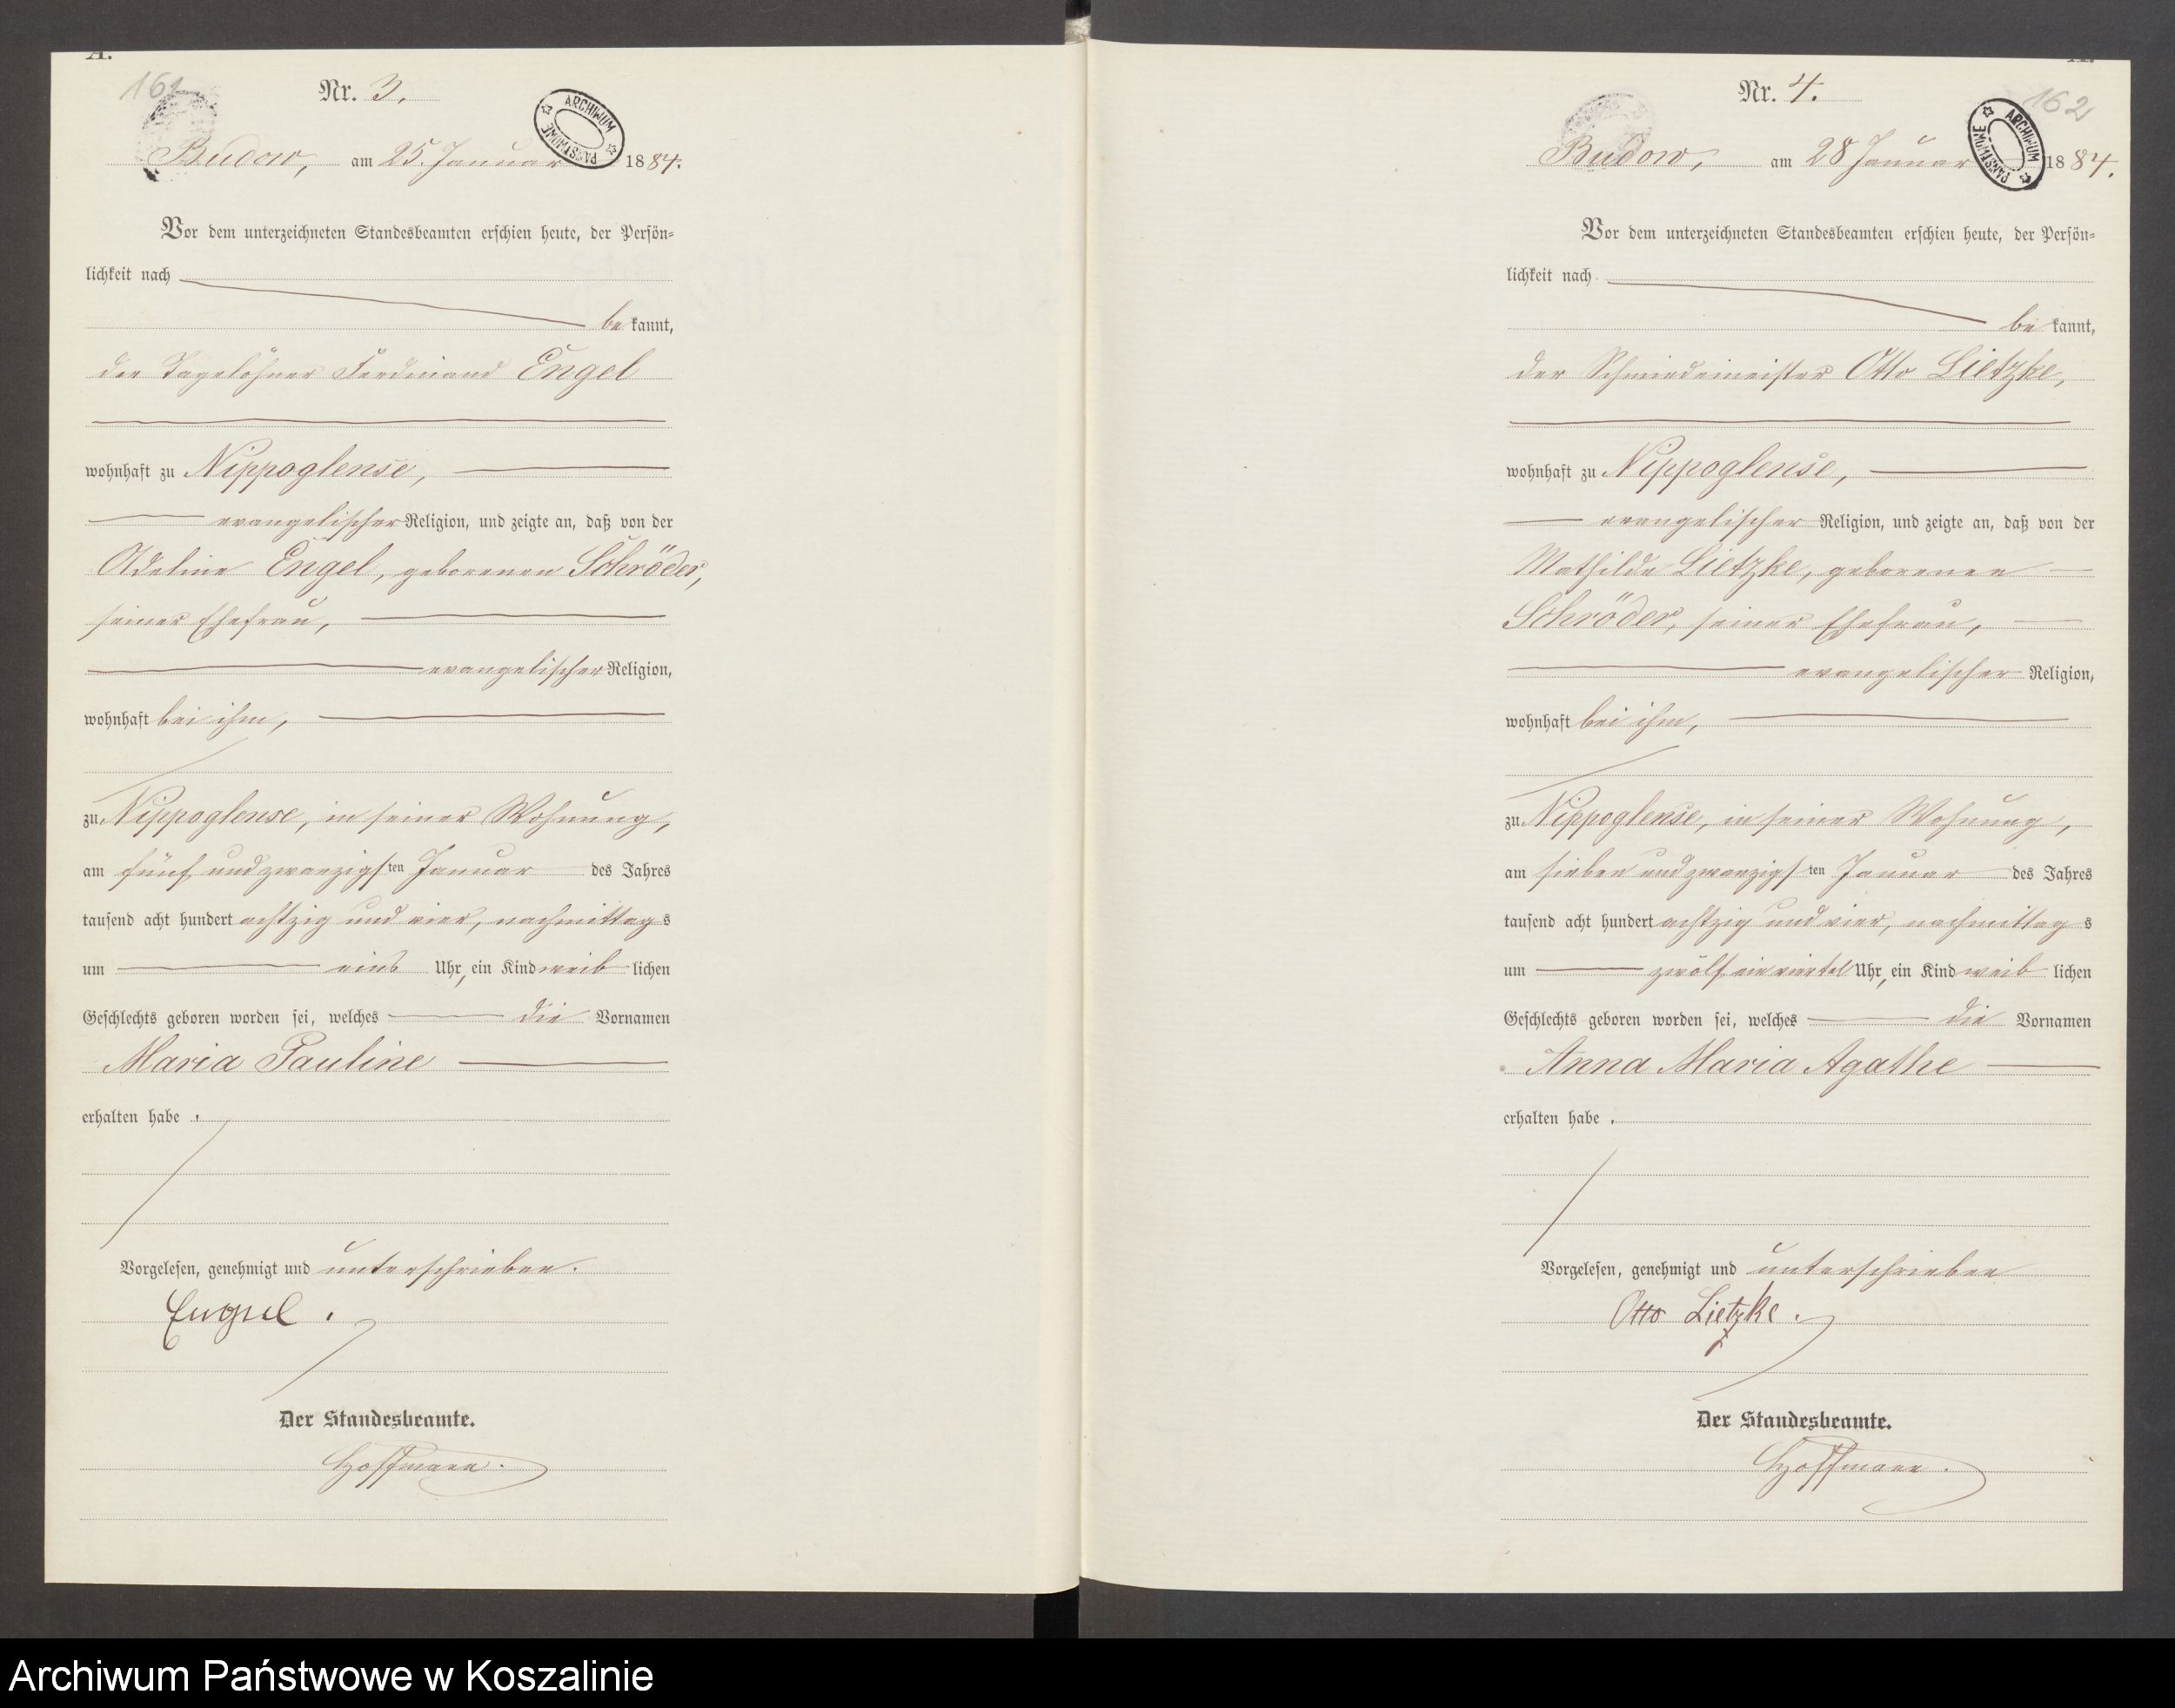 A.
161
Nr. 3.
ARCHIWUM PAŃSTWOWE
Budow, am 25. Januar 1884.
Vor dem unterzeichneten Standesbeamten erschien heute, der Persön-
lichkeit nach
be kannt,
der Tagelöhner Ferdinand Engel
wohnhaft zu Nippoglense,
evangelischer Religion, und zeigte an, daß von der
Adeline Engel, geborenen Schröder,
seiner Ehefrau,
evangelischer Religion,
wohnhaft bei ihm,
zu Nippoglense, in seiner Wohnung,
am fünf und zwanzigsten Januar des Jahres
tausend acht hundert achtzig und vier, nachmittags
um eins Uhr, ein Kind weiblichen
Geschlechts geboren worden sei, welches die Vornamen
Maria Pauline
erhalten habe.
Vorgelesen, genehmigt und unterschrieben.
Engel.
Der Standesbeamte.
Hoffmann.
162
Nr. 4.
ARCHIWUM PAŃSTWOWE
Budow, am 28 Januar 1884.
Vor dem unterzeichneten Standesbeamten erschien heute, der Persön-
lichkeit nach
be kannt,
der Schmiedemeister Otto Lietzke,
wohnhaft zu Nippoglense,
evangelischer Religion, und zeigte an, daß von der
Mathilde Lietzke, geborenen
Schröder, seiner Ehefrau,
evangelischer Religion,
wohnhaft bei ihm,
zu Nippoglense, in seiner Wohnung,
am sieben und zwanzigsten Januar des Jahres
tausend acht hundert achtzig und vier, nachmittags
um zwölf ein viertel Uhr, ein Kind weiblichen
Geschlechts geboren worden sei, welches die Vornamen
Anna Maria Agathe
erhalten habe.
Vorgelesen, genehmigt und unterschrieben
Otto Lietzke.
Der Standesbeamte.
Hoffmann.
Archiwum Państwowe w Koszalinie